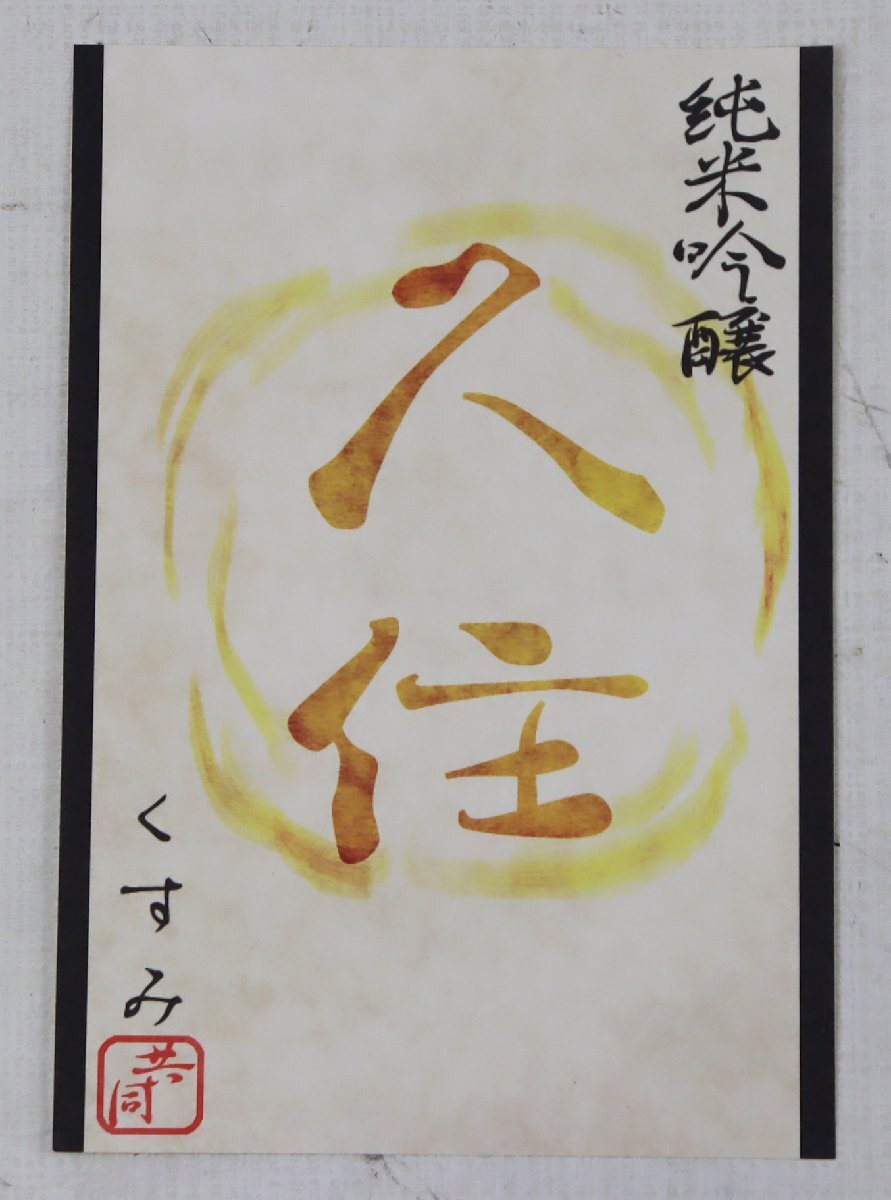 純米吟醸
久住
くすみ
共同